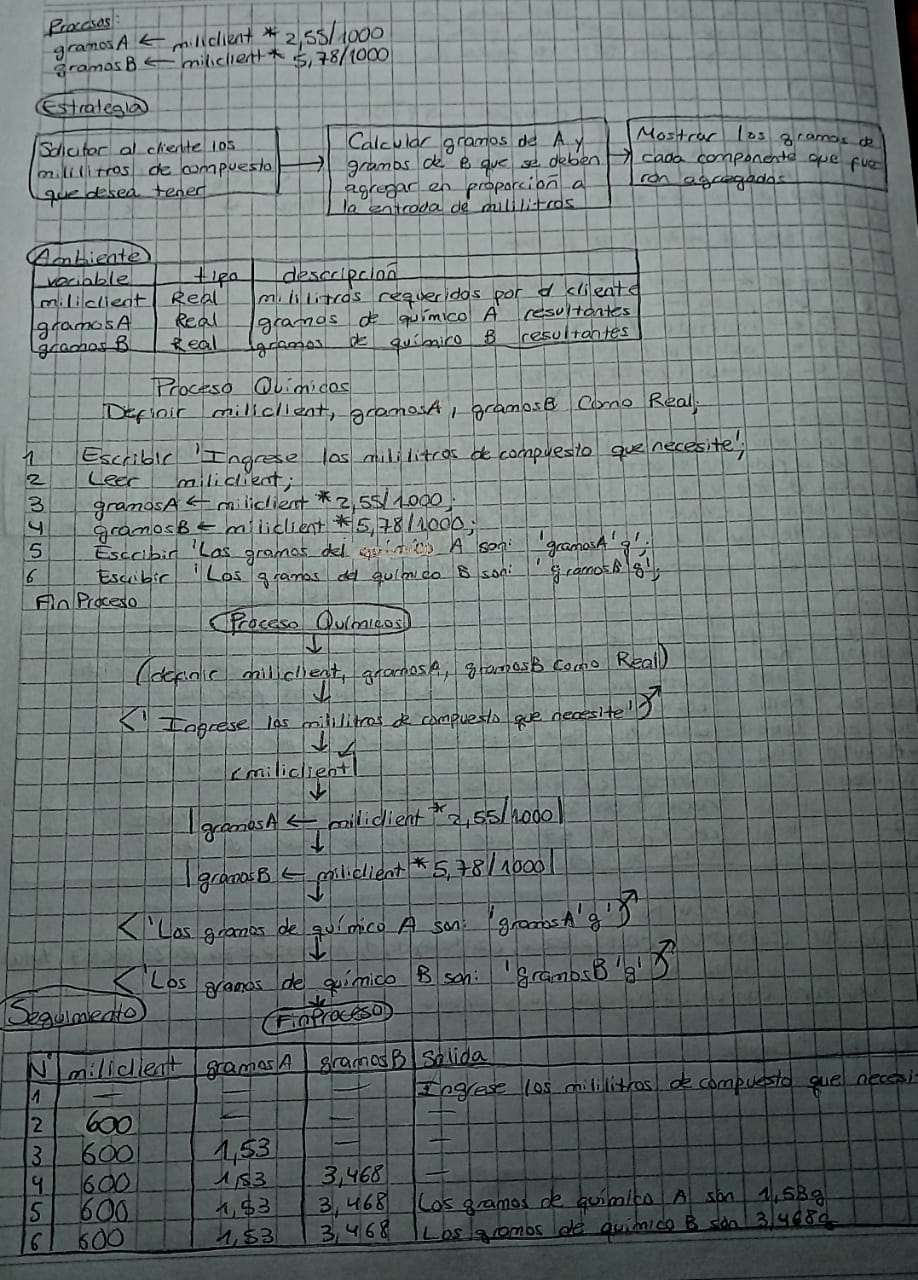 Procesos:
gramosA ← miliclient * 2,55/1000
gramosB ← miliclient * 5,78/1000
Estrategia
Solicitar al cliente los
mililitros de compuesto
que desea tener
Calcular gramos de A y
gramos de B que se deben
agregar en proporción a
la entrada de mililitros
Mostrar los gramos de
cada componente que fue
ron agregados
Ambiente
variable tipo descripcion
miliclient Real mililitros requeridos por el cliente
gramosA Real gramos de químico A resultantes
gramosB Real gramos de químico B resultantes
Proceso Químicos
Definir miliclient, gramosA, gramosB Como Real;
1 Escribir 'Ingrese los mililitros de compuesto que necesite';
2 Leer miliclient;
3 gramosA ← miliclient * 2,55/1000;
4 gramosB ← miliclient * 5,78/1000;
5 Escribir 'Los gramos del químico A son: 'gramosA'g';
6 Escribir 'Los gramos del químico B son: 'gramosB'g';
Fin Proceso
Proceso Químicos
(definir miliclient, gramosA, gramosB Como Real)
'Ingrese los mililitros de compuesto que necesite'
miliclient
gramosA ← miliclient * 2,55/1000
gramosB ← miliclient * 5,78/1000
'Los gramos de químico A son: 'gramosA'g'
'Los gramos de químico B son: 'gramosB'g'
FinProceso
Seguimiento
N° miliclient gramosA gramosB Salida
1 — — — Ingrese los mililitros de compuesto que necesi
2 600 — — —
3 600 1,53 — —
4 600 1,53 3,468 —
5 600 1,53 3,468 Los gramos de químico A son 1,53g
6 600 1,53 3,468 Los gramos de químico B son 3,468g